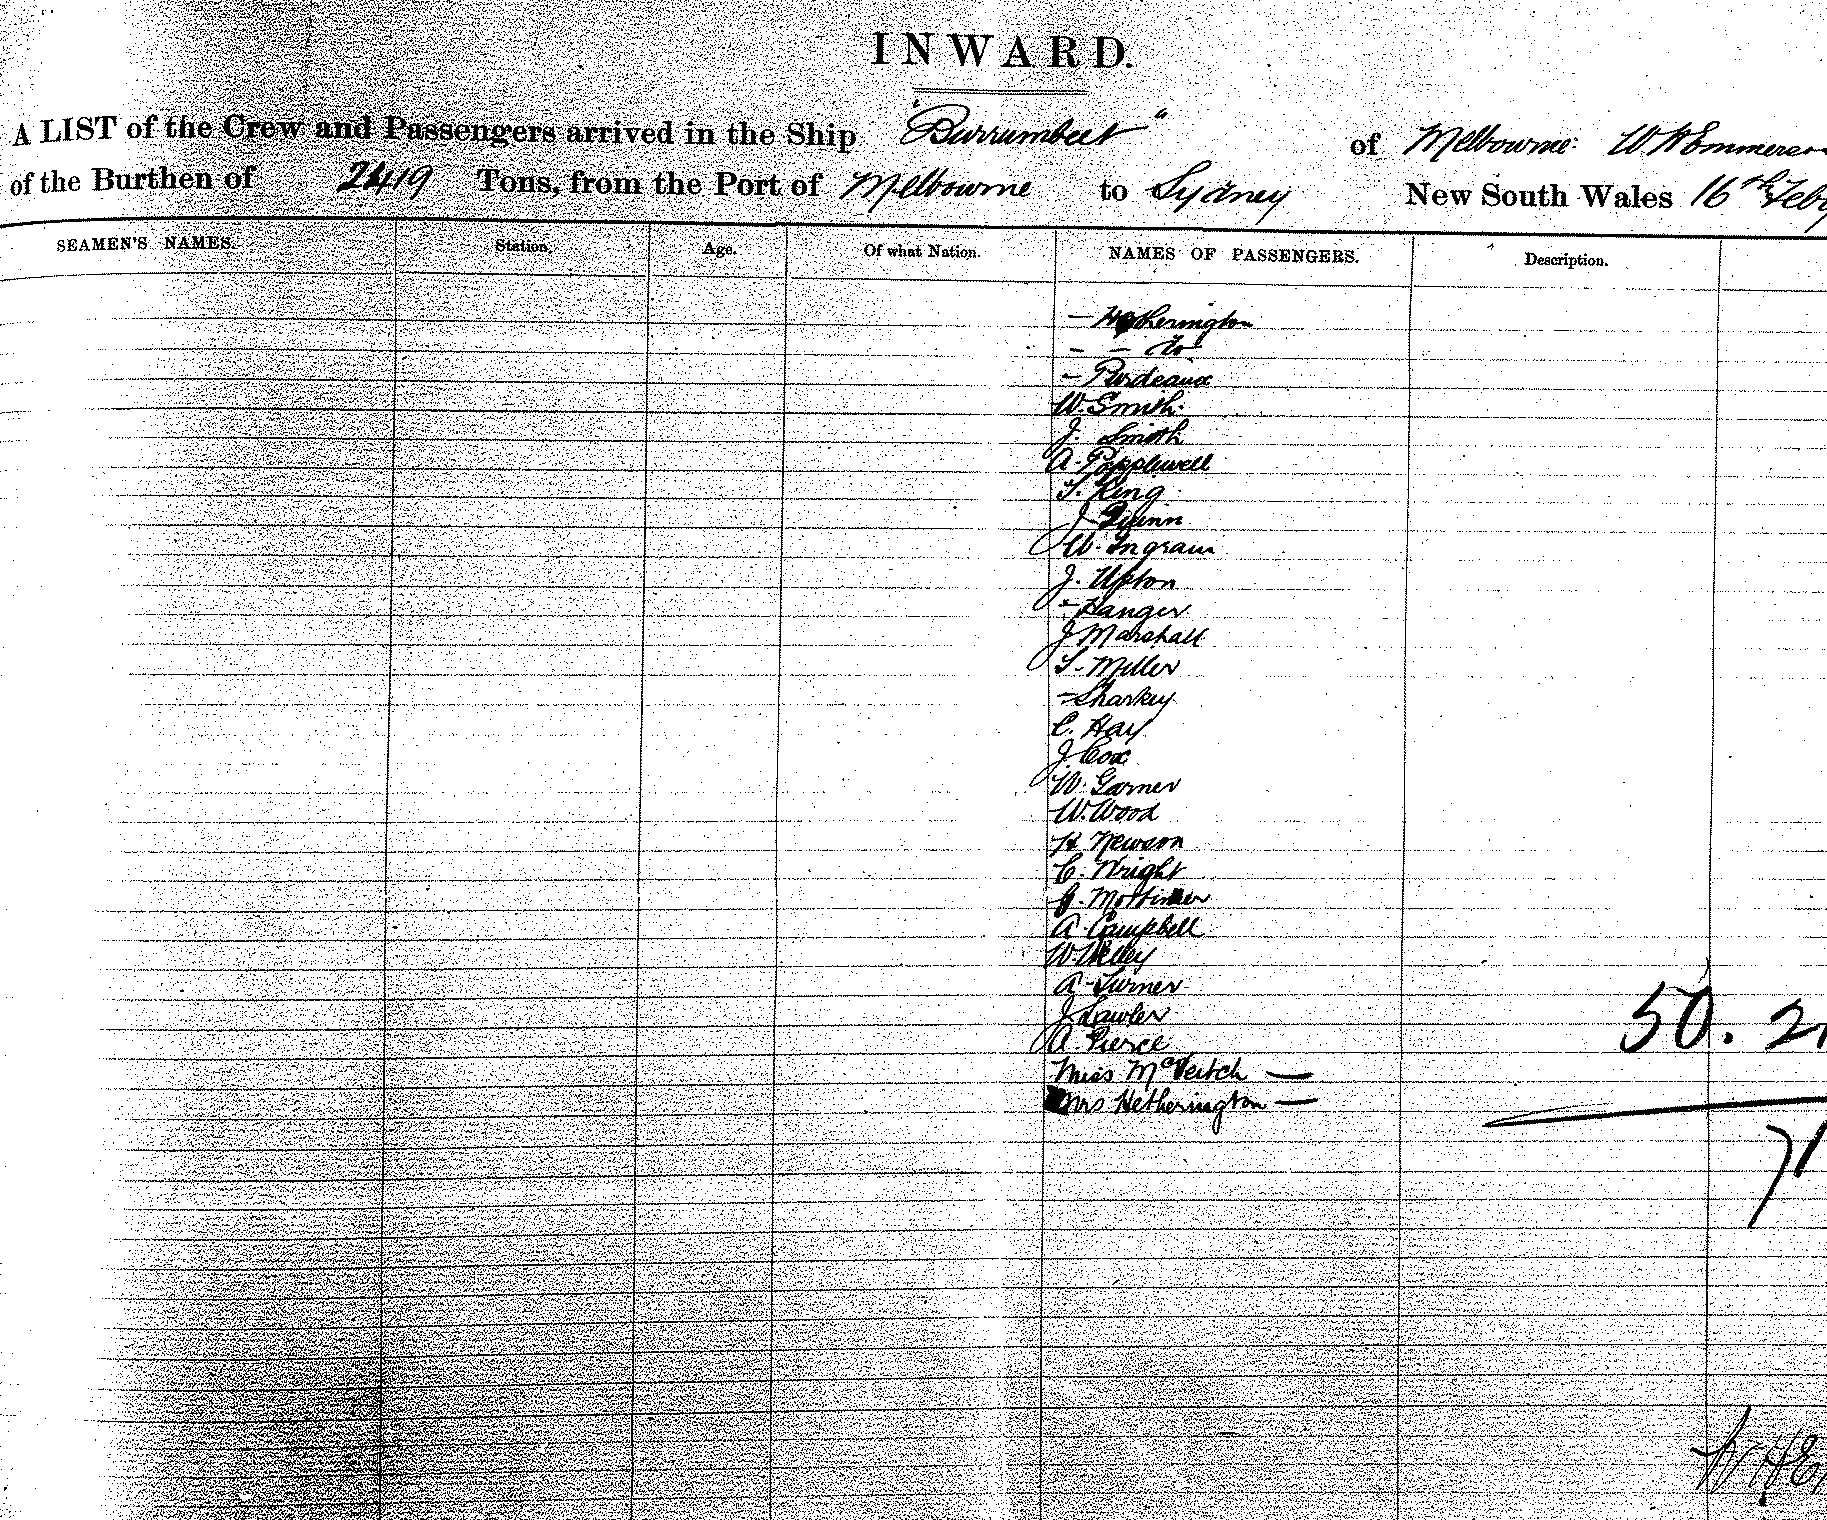 INWARD.
A LIST of the Crew and Passengers arrived in the Ship "Burrumbeet" of Melbourne: W H Emmerson
of the Burthen of 2419 Tons, from the Port of Melbourne to Sydney New South Wales 16th Feby
SEAMEN'S NAMES. Station. Age. Of what Nation. NAMES OF PASSENGERS. Description.
- Hetherington
- - do
- Purdeaux
W. Smith.
J. Smith
A. Popplewell
T. King
J. Quinn
W. Ingram
J. Upton
- Hanger
J Marshall
T. Miller
- Sharkey
C. Hay
J. Cox
W. Garner
W. Wood
H Newson
C. Wright
G. Mortimer
A Campbell
W Willey
A Turner
J Lawler
A. Pierce
Miss McVeitch —
Mrs Hetherington —
50. 21
71
W H Em